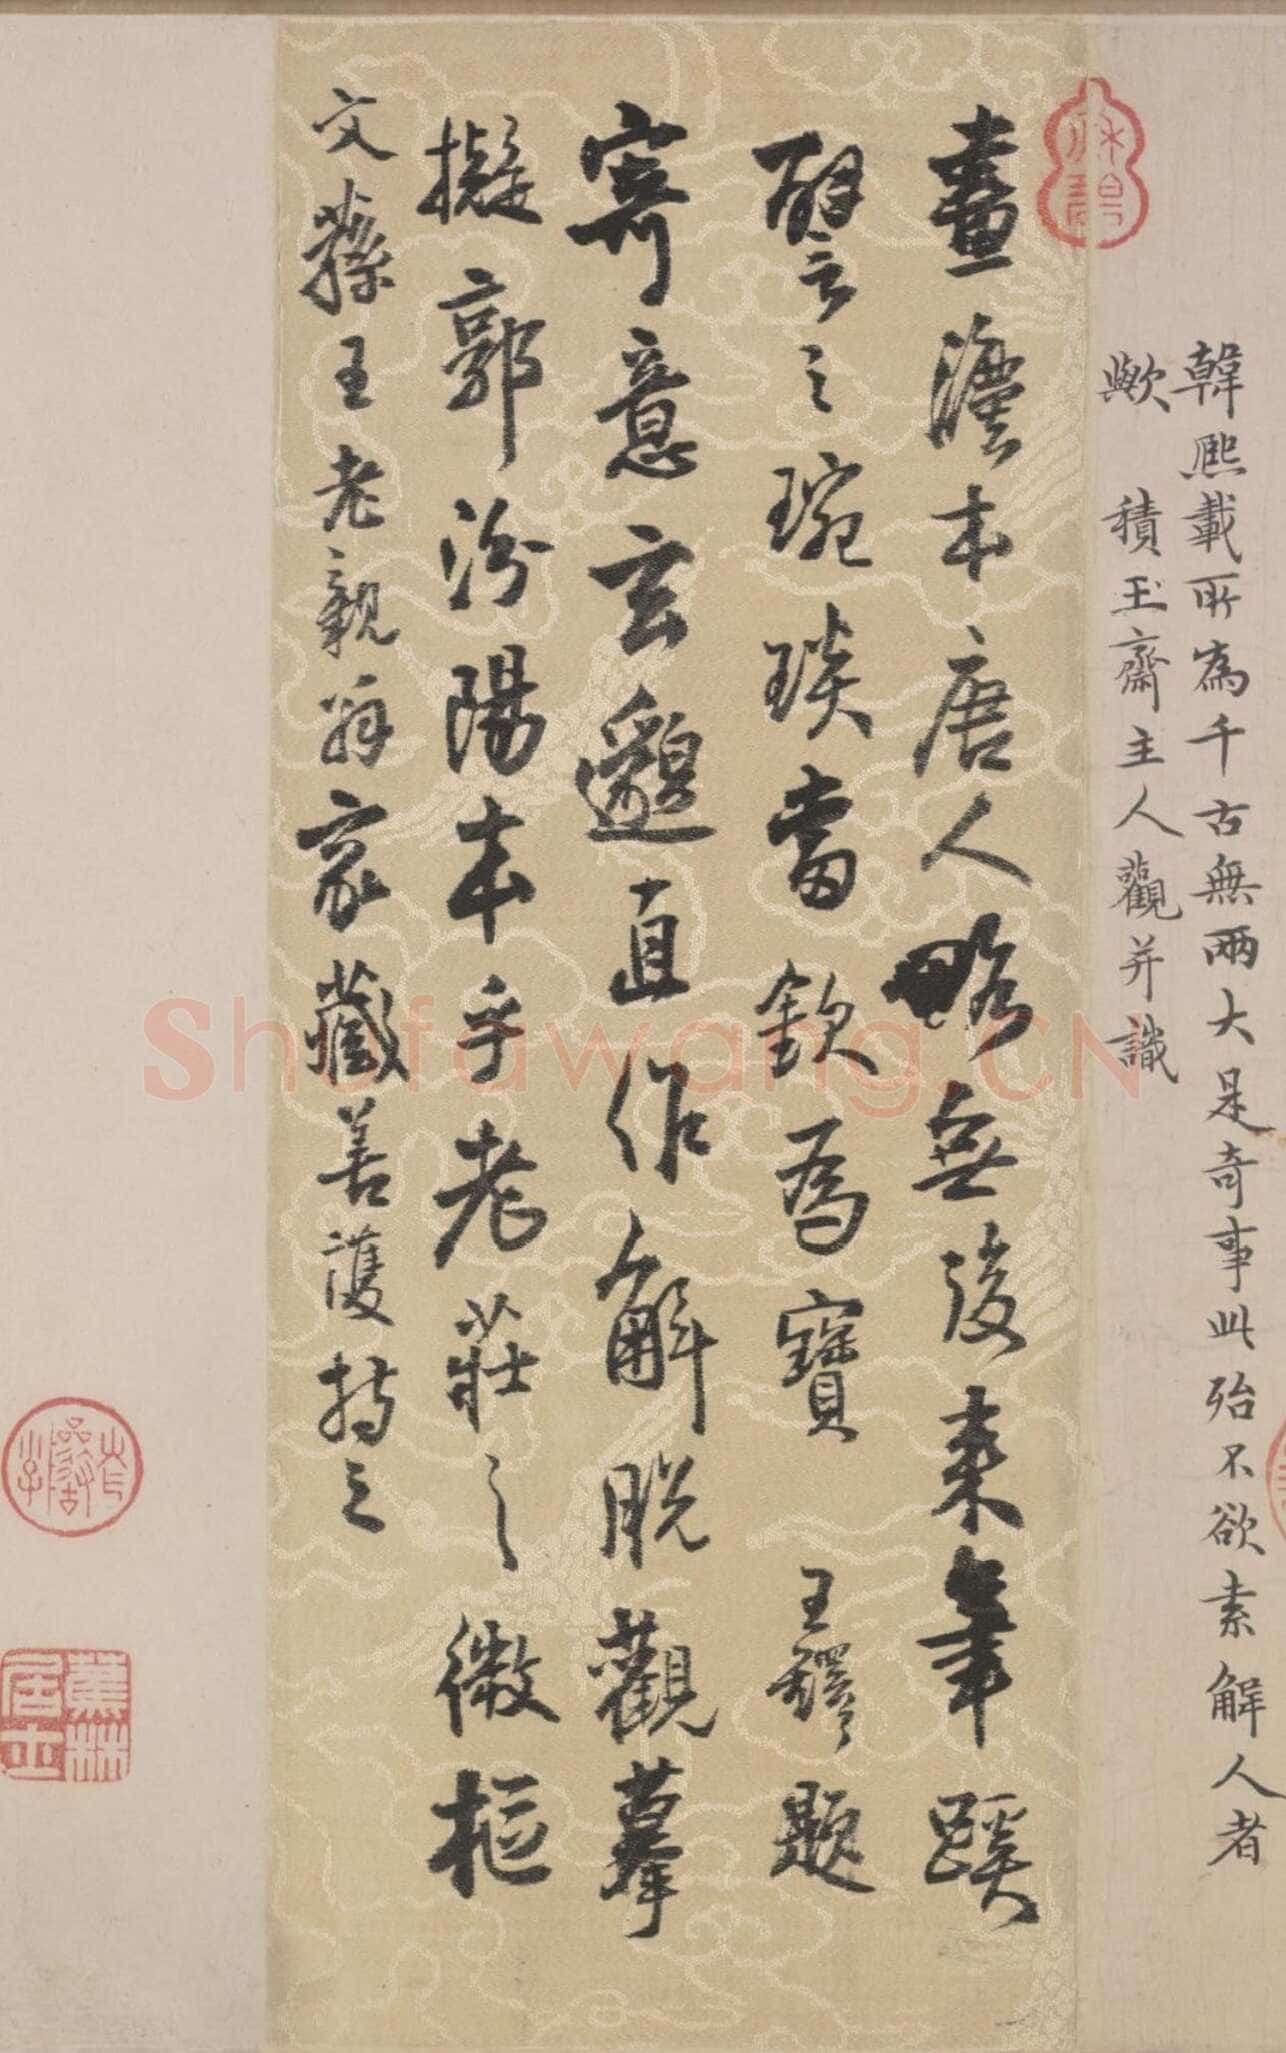 韓熙載所為千古無兩大是奇事此殆不欲索解人者
歟 積玉齋主人觀并識
畫法本唐人略無後來筆蹊
譬之琬琰當欽為寶 王鐸題
寄意玄邈直作解脫觀摹
擬郭汾陽本乎老莊之微樞
文蓀王老親翁家藏善護持之
蕉林居士
Shufawang.CN